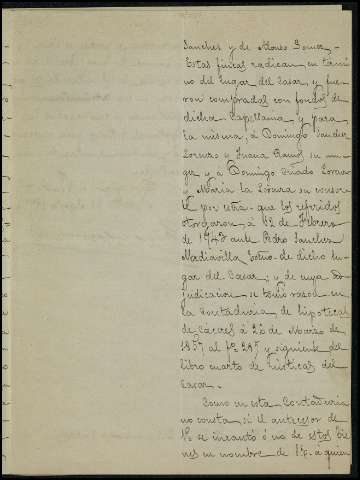 Sanches y de Alonso Gomez,-
Estas fincas radican en termi
no del lugar del Casar, y fue
ron compradas con fondos de
dicha Capellania, y para
la misma, á Domingo
y Juana Ramos su mu
ger y á Domingo
y Maria la su consor
te por que los referidos
otorgaron á 12 de Febrero
de ante Pedro Sanches
de dicho lu
gar del Casar; y de cuya ad
judicacion se tomó razon en
la Contaduria de hipotecas
de Caceres á 26 de Marzo de
1857 al fº 295 y siguiente del
libro cuarto de rusticas del
Casar.
Como en esta Contaduria
no consta, si el antecesor de
V. se incautó ó no de estos bie
nes en nombre de á quien